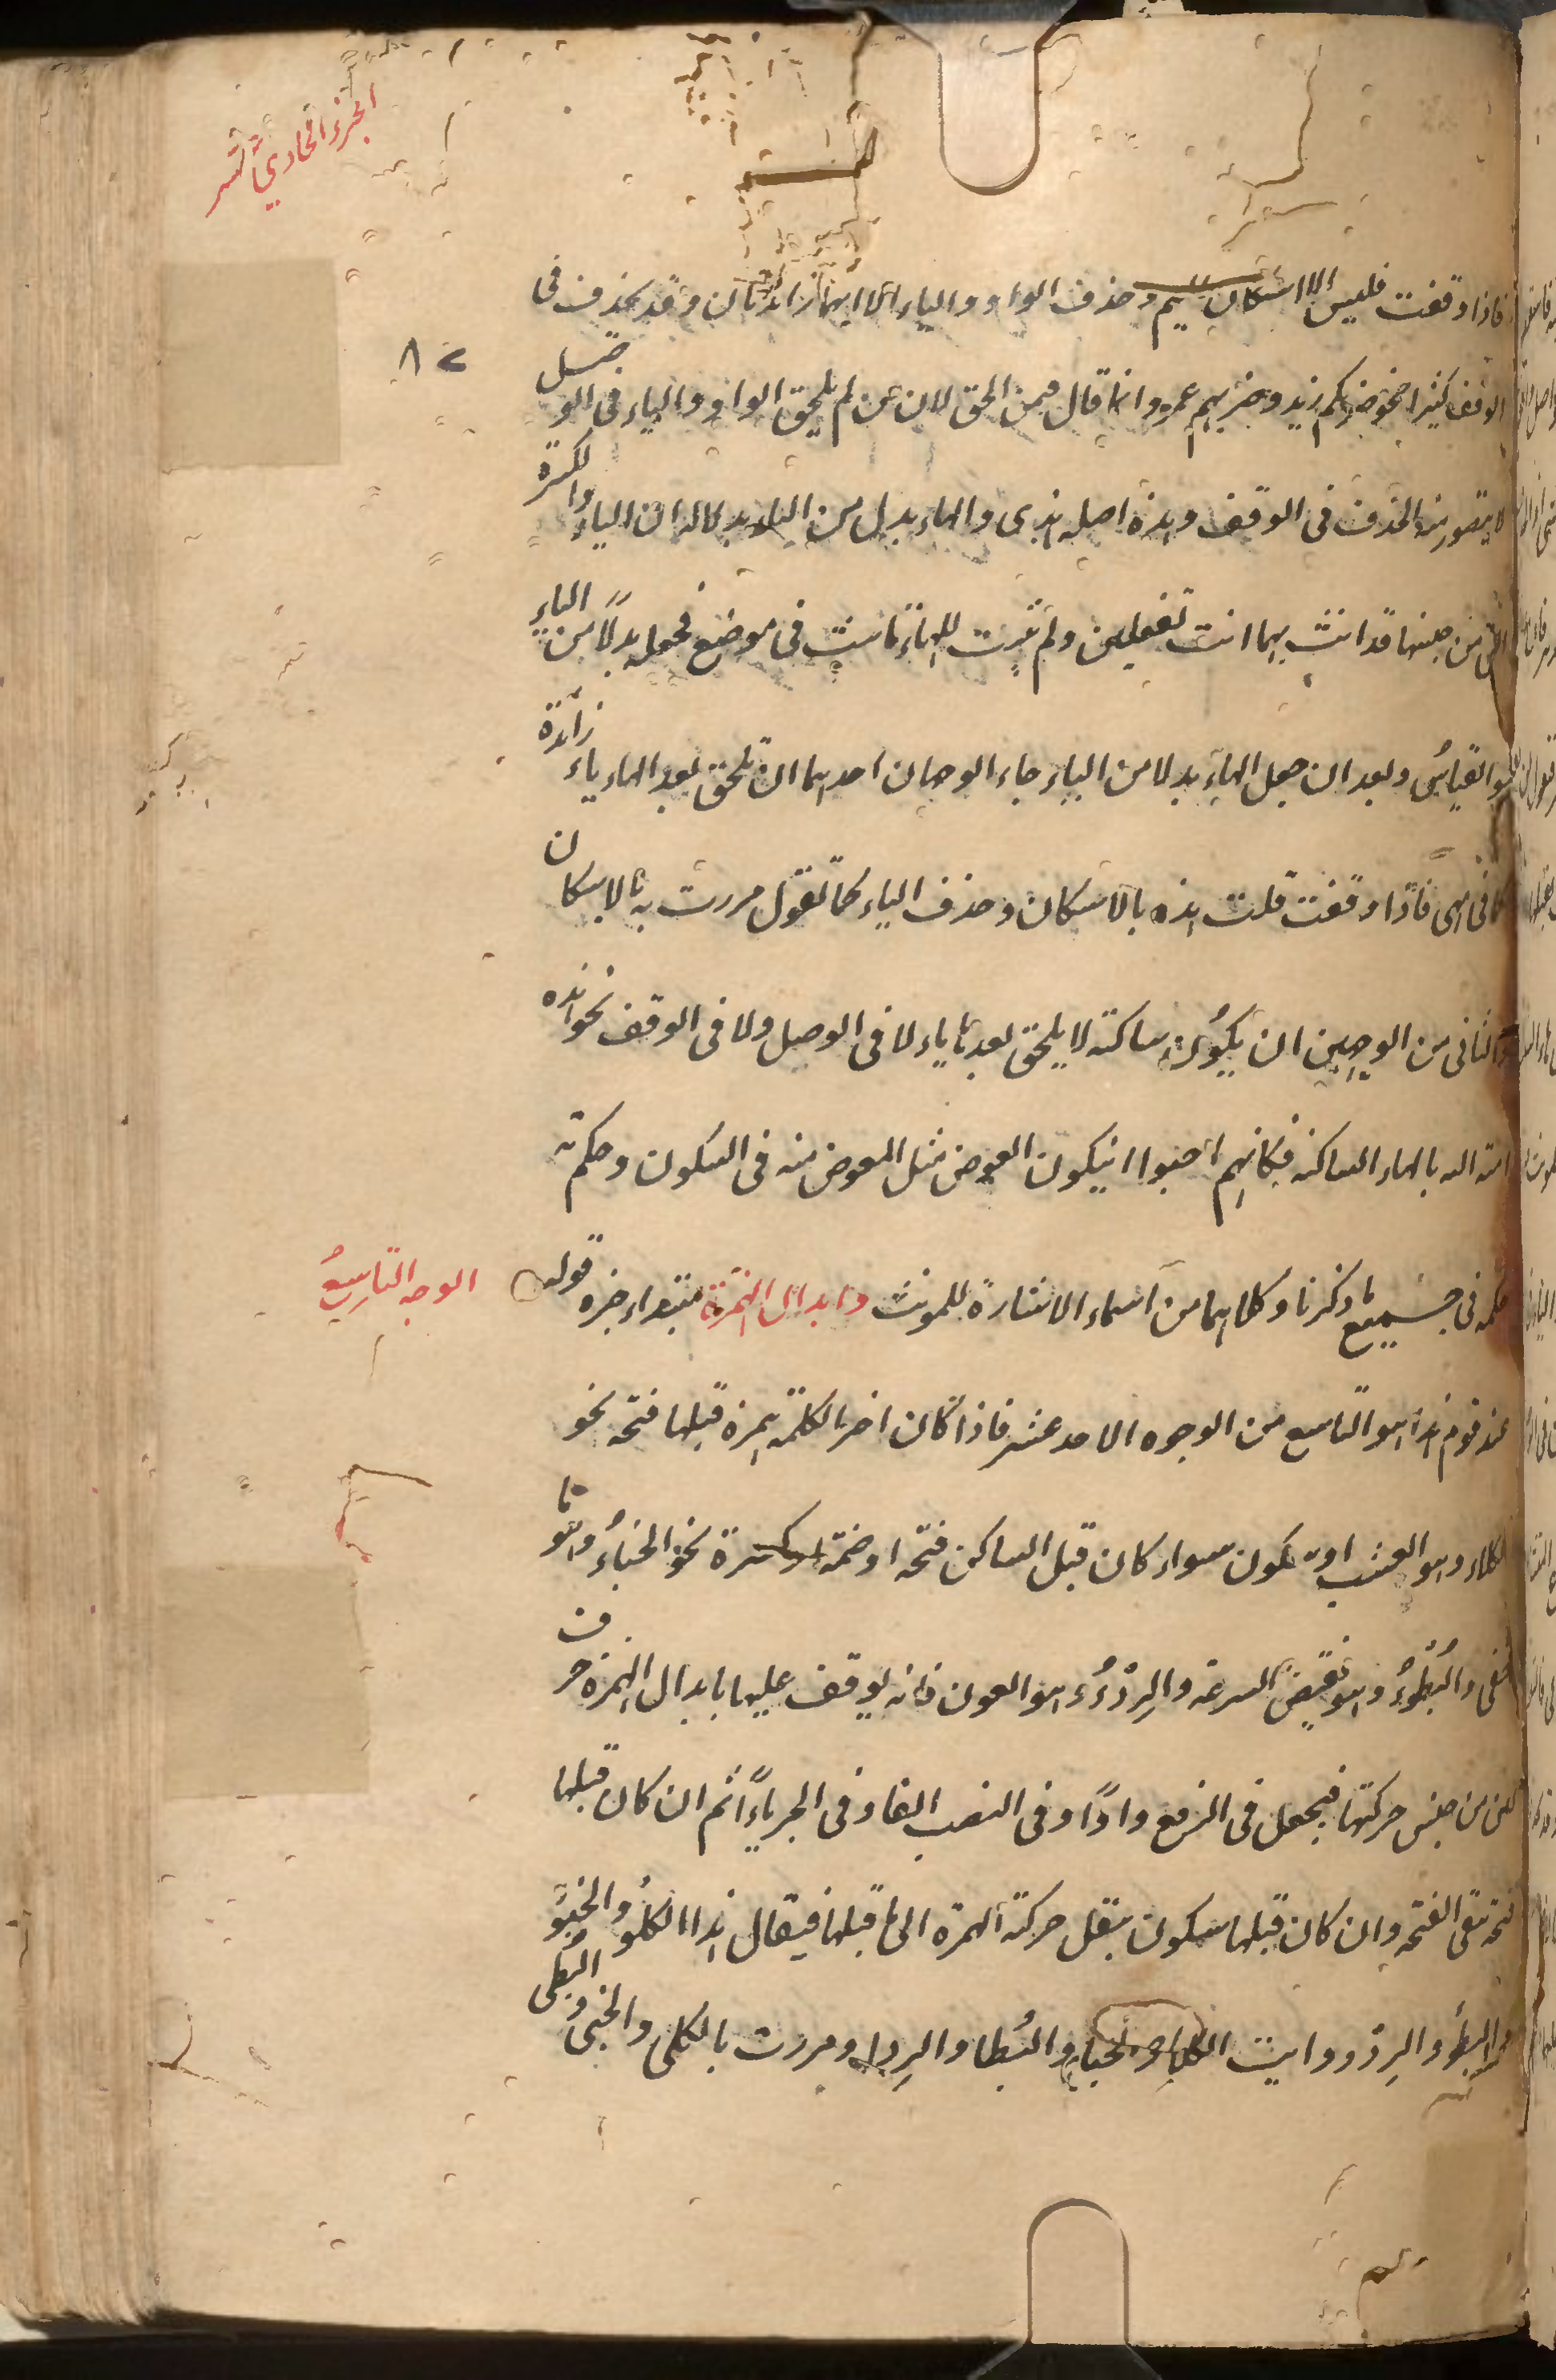 الجزء الحادي عشر
فاذا وقفت فليس الا اسكان الميم وحذف الواو والياء لانهما زائدتان وقد يحذف فى
٨٢
الوقف كثيرا نحو ضربكم زيد وضربهم عمرو وانما قال فيمن الحق لان من لم يلحق الواو والياء فى الوصل
لا يتصور منه الحذف فى الوقف وهذه اصله هذى والهاء بدل من الياء بدلالة ان الياء والكسرة
التى من جنسها قد انث بهما انت تفعلين ولم تثبت للهاء تانيث فى موضع فجعله بدلا من الياء
هو القياس وبعد ان جعل الهاء بدلا من الياء جاء الوجهان احدهما ان تلحق بعد الهاء ياء زائدة
كما فى بهى فاذا وقفت قلت هذه بالاسكان وحذف الياء كما تقول مررت به بالاسكان
والثانى من الوجهين ان يكون ساكنة لا يلحق بعدها ياء لا فى الوصل ولا فى الوقف نحو هذه
امة الله بالهاء الساكنة فكانهم احبوا ان يكون العوض مثل المعوض منه فى السكون وحكم ته
حكمه فى جميع ما ذكرنا وكلاهما من اسماء الاشارة للمونث وابدال الهمزة مبتداء خبره قوله
الوجه التاسع
عند قوم هذا هو التاسع من الوجوه الاحد عشر فاذا كان اخر الكلمة همزة قبلها فتحة نحو
الكلاء وهو العشب او سكون سواء كان قبل الساكن فتحة او ضمة او كسرة نحو الخباء وهو ما
خفى والبطوء وهو نقيض السرعة والردء وهو العون فانه يوقف عليها بابدال الهمزة حرف
لين من جنس حركتها فيجعل فى الرفع واوا وفى النصب الفا وفى الجر ياء ثم ان كان قبلها
فتحة بقى الفتحة وان كان قبلها سكون ينقل حركة الهمزة الى ما قبلها فيقال هذا الكلو والخبو
والبطو والردو ورايت الكلا والخبا والبطا والردا ومررت بالكلى والخبى والبطى